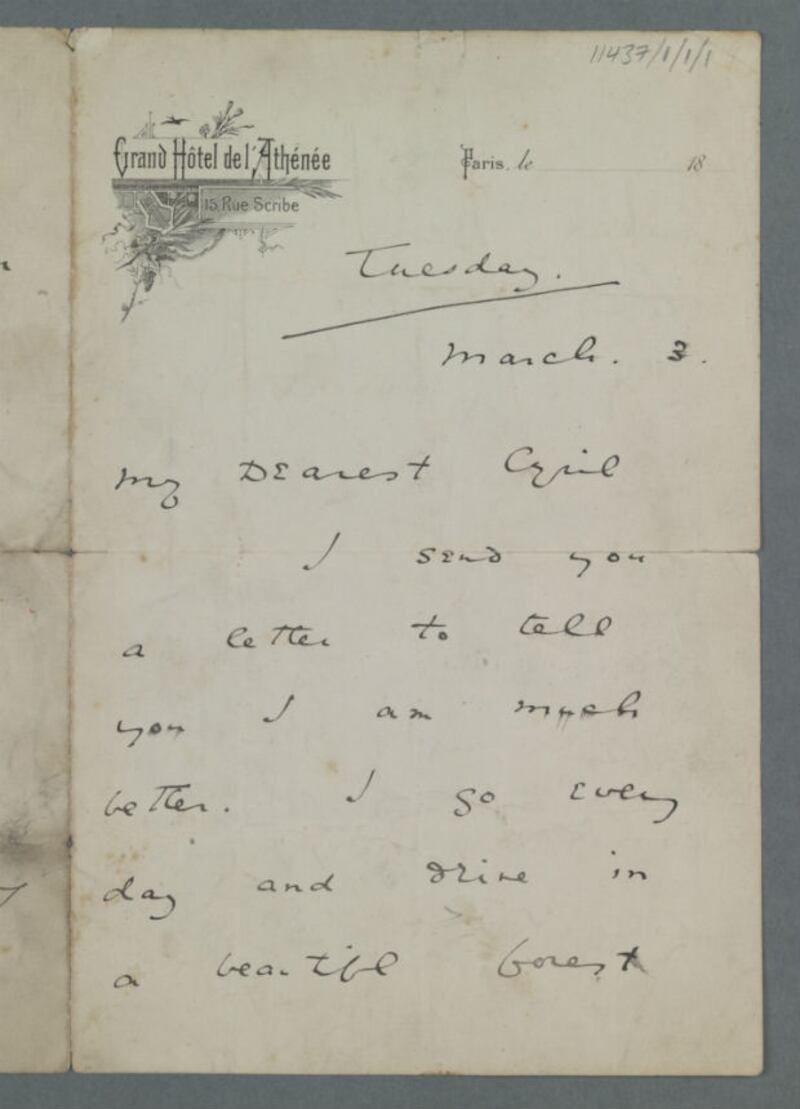 11437/1/1/1
Grand Hôtel de l'Athénée
15, Rue Scribe
Paris, le 18
Tuesday.
March. 3.
My Dearest Cyril
I send you
a letter to tell
you I am much
better. I go every
day and drive in
a beautiful forest